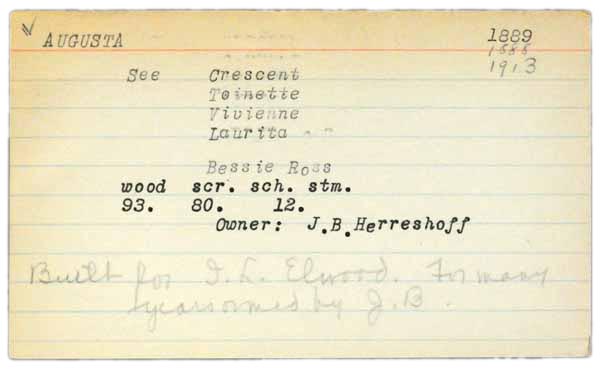 AUGUSTA 1889
1888
1913
See Crescent
Toinette
Vivienne
Laurita " "
Bessie Ross
wood scr. sch. stm.
93. 80. 12.
Owner: J.B.Herreshoff
Built for I. L. Elwood. For many
years owned by J.B.